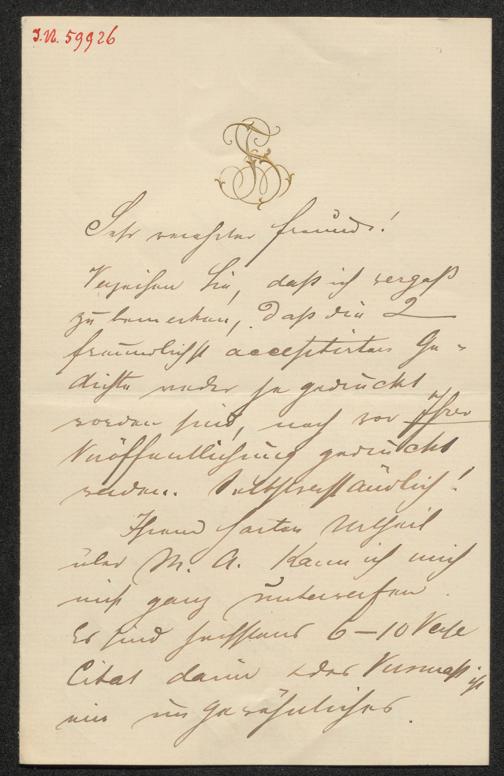 J.N. 59926
Sehr verehrter Freund!
Verzeihen Sie, daß ich vergaß
zu bemerken, daß die 2
freundlichst acceptirten Ge-
dichte weder je gedruckt
worden sind, noch vor Ihrer
Veröffentlichung gedruckt
werden. Selbstverständlich!
Ihrem harten Urtheil
über M. A. kann ich mich
nicht ganz unterwerfen.
Es sind höchstens 6–10 Verse
Citat darin oder Versmaß ist
ein ungewöhnliches.